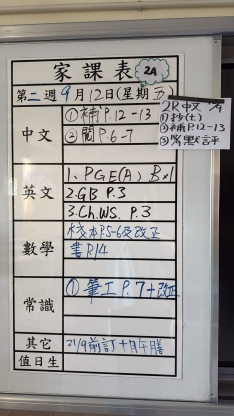 家課表
2A
第二週9月12日(星期五)
中文
①補P.12-13
②閱P.6-7
英文
1、PGE(A) Bx1
2.GB P.3
3.Ch.WS. P.3
數學
校本P.5-6及改正
書P.14
常識
① 筆工P.7+改正
其它
21/9前訂十月午膳
值日生
2R中文
①抄(七)
②補P.12-13
③默評